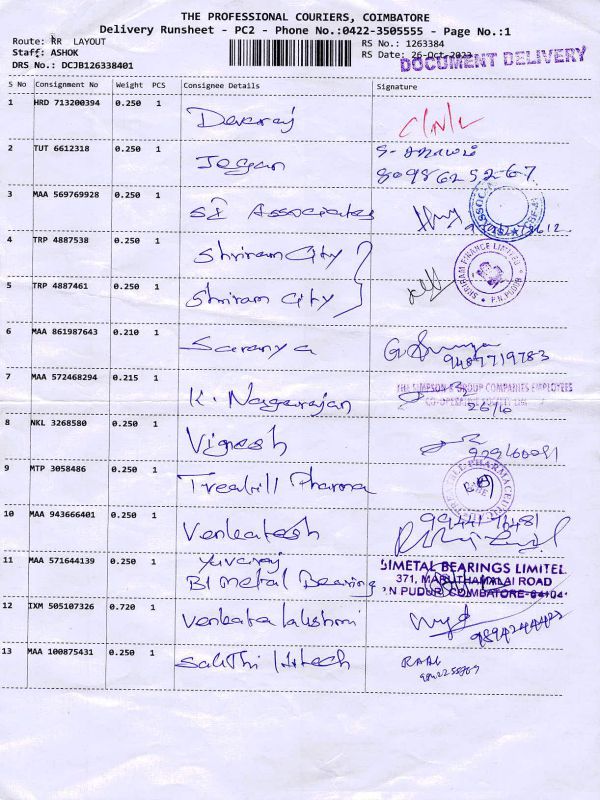 THE PROFESSIONAL COURIERS, COIMBATORE
Delivery Runsheet - PC2 - Phone No.:0422-3505555 - Page No.:1
Route: RR LAYOUT
RS No.: 1263384
Staff: ASHOK
RS Date: 26-Oct-2023
DOCUMENT DELIVERY
DRS No.: DCJB126338401
S No Consignment No Weight PCS Consignee Details Signature
1 HRD 713200394 0.250 1 Devaraj
2 TUT 6612318 0.250 1 Jegan
80986252-67
3 MAA 569769928 0.250 1 SI Associates
4 TRP 4887538 0.250 1 Shriram City
SHRIRAM FINANCE LIMITED
P.N.PUDUR
5 TRP 4887461 0.250 1 Shriram City
6 MAA 861987643 0.210 1 Saranya
9487719783
7 MAA 572468294 0.215 1 K. Nagarajan
THE SIMPSON & GROUP COMPANIES EMPLOYEES
CO-OPERATIVE
8 NKL 3268580 0.250 1 Vignesh
9 MTP 3058486 0.250 1 Treahill Pharma
10 MAA 943666401 0.250 1 Venkatesh
11 MAA 571644139 0.250 1 Yuvaraj
BI metal Bearing
BIMETAL BEARINGS LIMITED
371, MARUTHAMALAI ROAD
P.N PUDUR, COIMBATORE-641041
12 IXM 505107326 0.720 1 Venkata lakshmi
9894244422
13 MAA 100875431 0.250 1 Sakthi Hitech